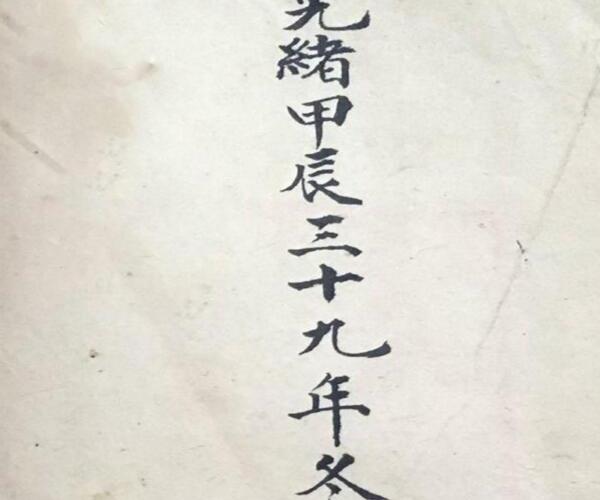 光緒甲辰三十九年冬